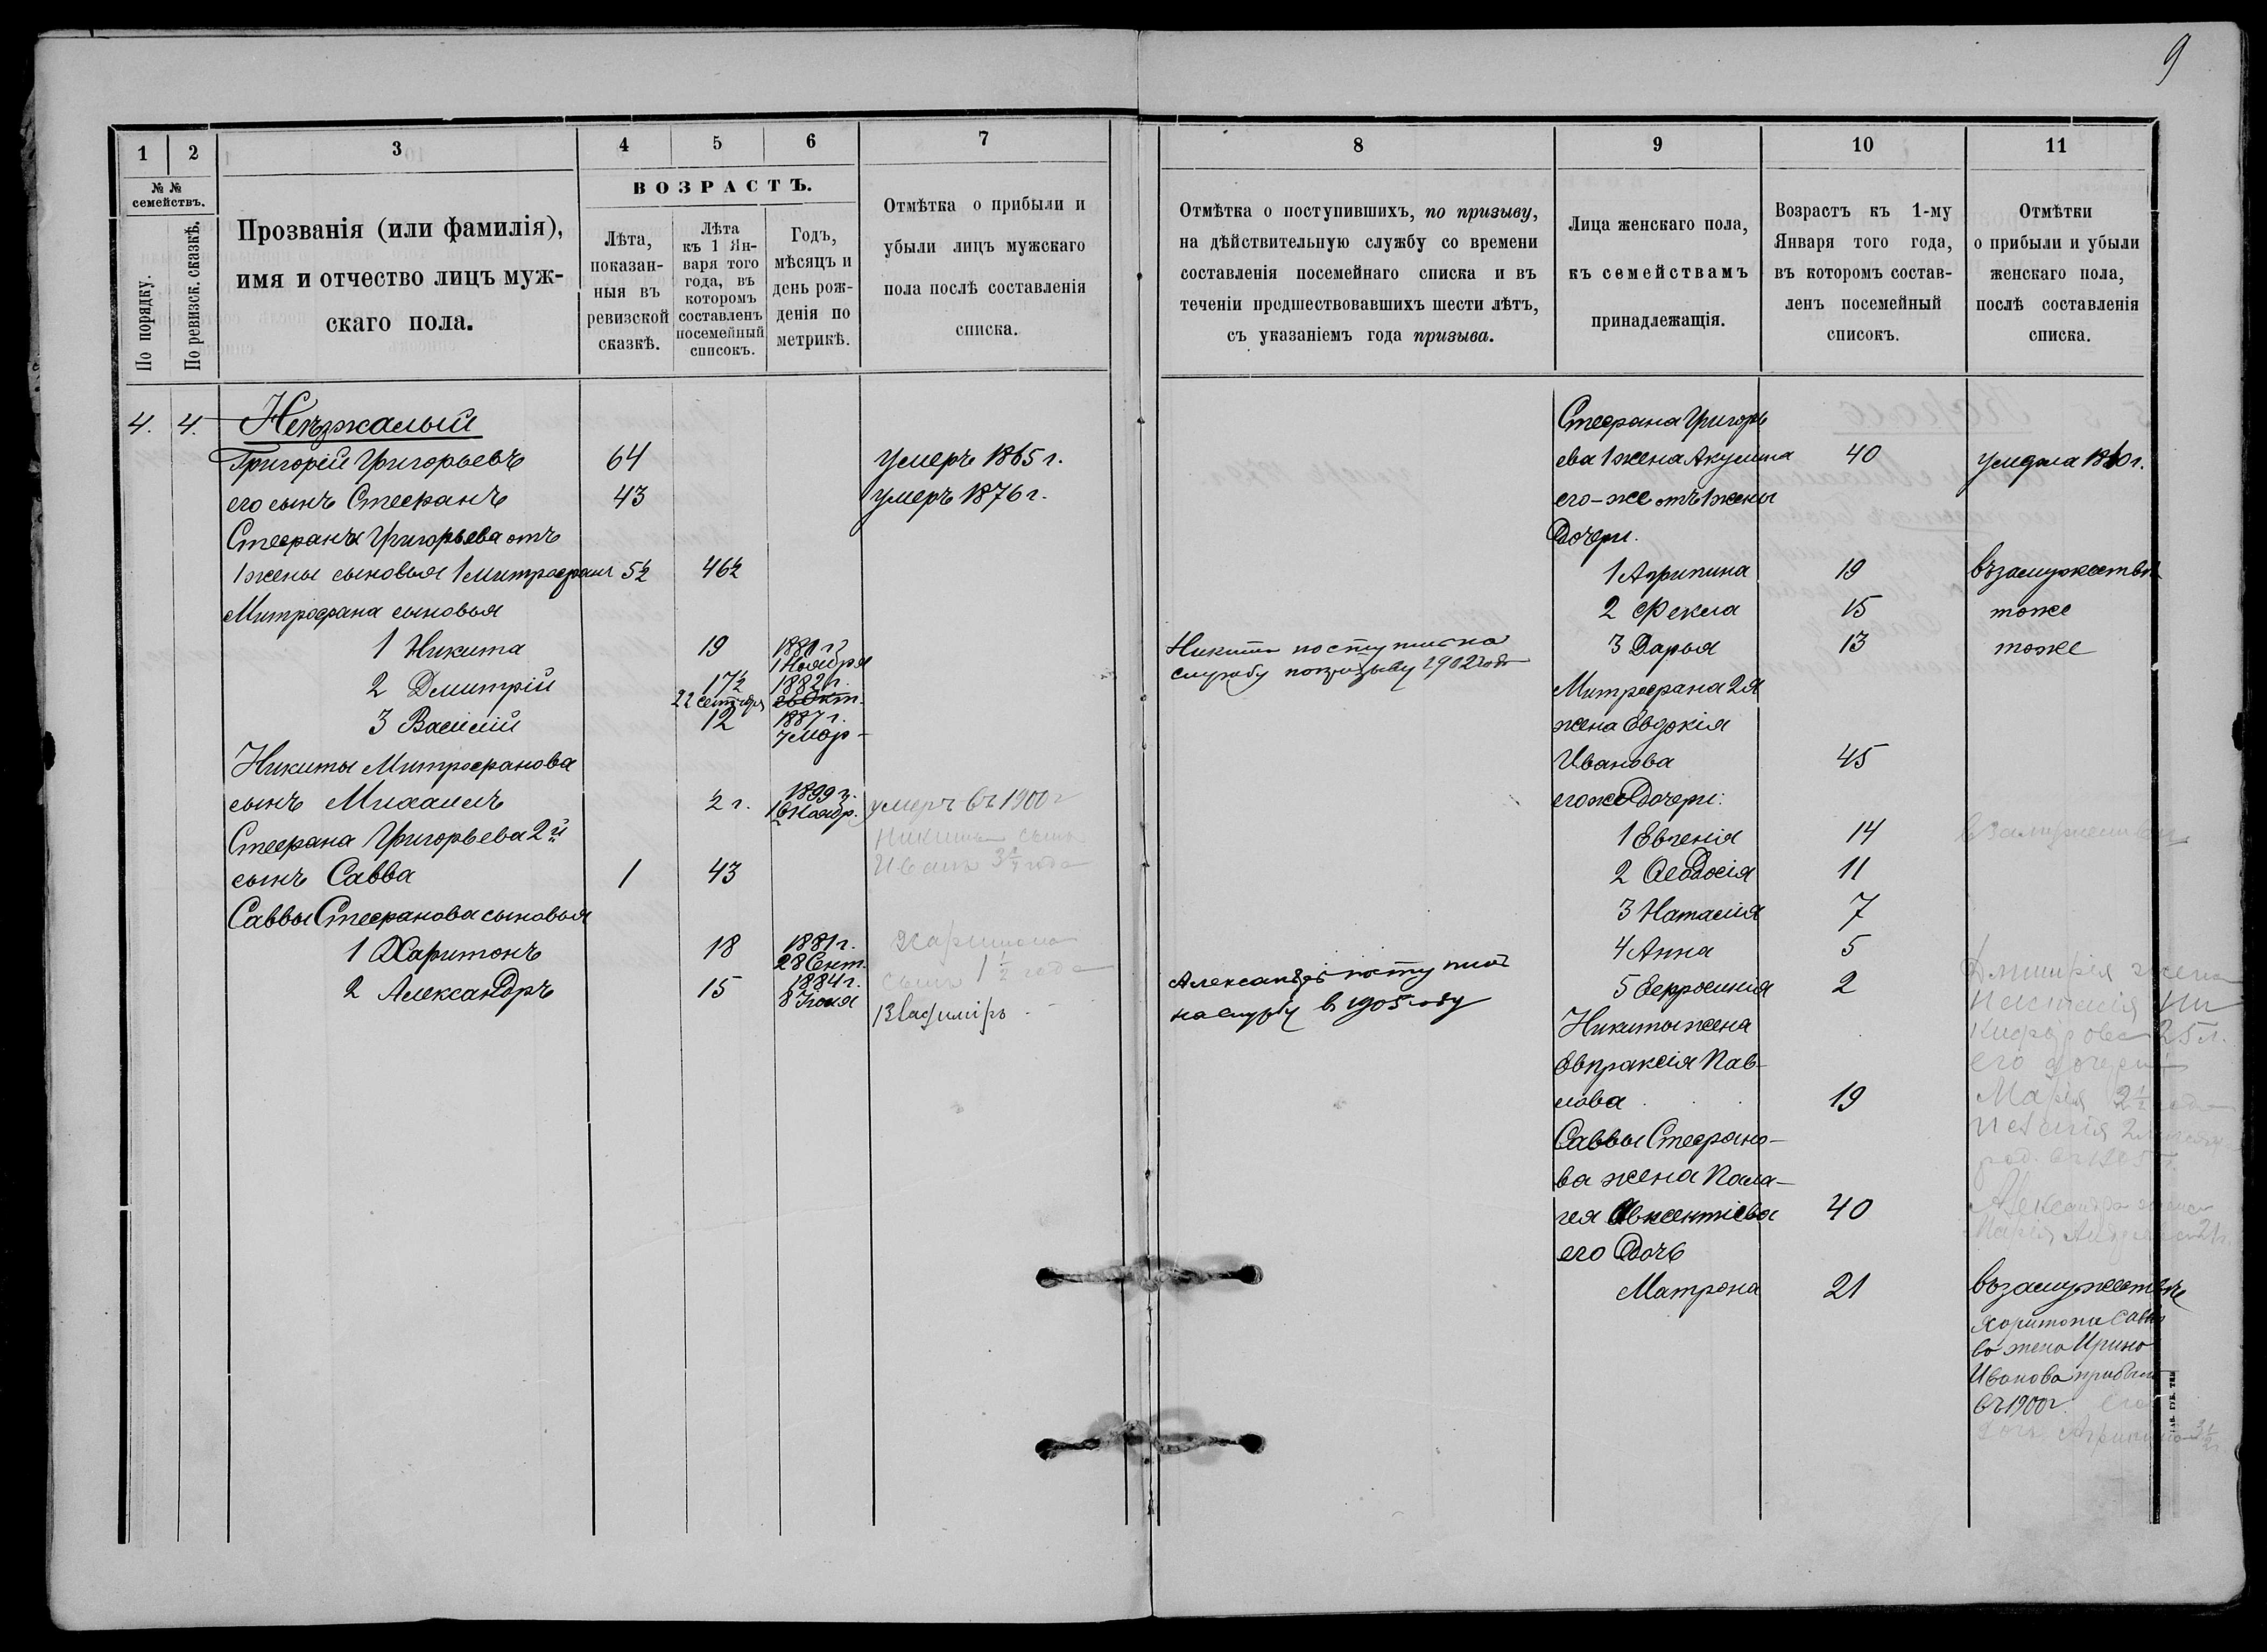 9
1
2
3
4
5
6
7
8
9
10
11
№ №
семействъ.
По порядку.
По ревизск. сказкѣ.
Прозванія (или фамилія),
имя и отчество лицъ муж-
скаго пола.
ВОЗРАСТЪ.
Лѣта,
показан-
ныя въ
ревизской
сказкѣ.
Лѣта
къ 1 Ян-
варя того
года, въ
которомъ
составленъ
посемейный
списокъ.
Годъ,
мѣсяцъ и
день рож-
денія по
метрикѣ.
Отмѣтка о прибыли и
убыли лицъ мужскаго
пола послѣ составленія
списка.
Отмѣтка о поступившихъ, по призыву,
на дѣйствительную службу со времени
составленія посемейнаго списка и въ
теченіи предшествовавшихъ шести лѣтъ,
съ указаніемъ года призыва.
Лица женскаго пола,
къ семействамъ
принадлежащія.
Возрастъ къ 1-му
Января того года,
въ которомъ состав-
ленъ посемейный
списокъ.
Отмѣтки
о прибыли и убыли
женскаго пола,
послѣ составленія
списка.
4. 4. Неѣзжалый
Григорій Григорьевъ 64 умеръ 1865 г.
его сынъ Стефанъ 43 умеръ 1876 г.
Стефана Григорьева отъ
1 жены сыновья 1 Митрофанъ 5½ 46½
Митрофана сыновья
1 Никита 19 1880 г.
1 Ноября
2 Дмитрій 17½ 1882 г.
22 сентября Окт.
3 Василій 12 1887 г.
7 Мар-
Никиты Митрофанова
сынъ Михаилъ 2 г. 1899 г.
16 Ноябр. умеръ въ 1900 г
Никиты сынъ
Стефана Григорьева 2й
Иванъ 3 года
сынъ Савва 1 43
Саввы Стефанова сыновья
1 Харитонъ 18 1881 г.
28 Сент.
Харитона
сынъ 1½ года
2 Александръ 15 1884 г.
8 Іюня
Владиміръ
Никита поступилъ на
службу по призыву 1902 года
Александръ поступилъ
на службу въ 1905 году
Стефана Григорь
ева 1 жена Акулина 40 умерла 1860 г.
его-же отъ 1 жены
дочери.
1 Агрипина 19 въ замужествѣ
2 Фекла 15 тоже
3 Дарья 13 тоже
Митрофана 2я
жена Евдокія
Иванова 45
его же дочери:
1 Евгенія 14 въ замужествѣ
2 Ѳеодосія 11
3 Наталія 7
4 Анна 5
5 Евфросинія 2
Никиты жена
Евпраксія Пав-
лова 19
Саввы Стефано-
ва жена Пела-
гея Авксентіева 40
его дочь
Матрона 21 въ замужествѣ
Дмитрія жена
25 л.
его дочери
Марія 2½ года
Александра жена
Марія
Харитона Савво
ва жена Ирина
Иванова прибыла
въ 1900 г. его
дочь Агрипина 3½